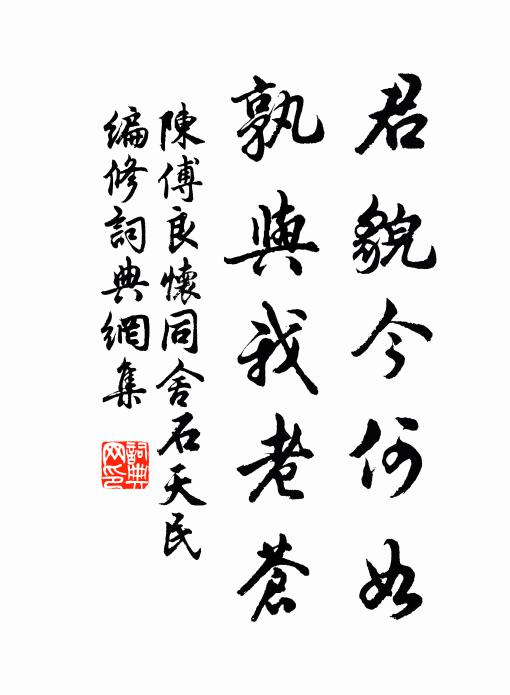 君貌今何如
孰與我老蒼
陳傅良懷同舍石天民
編修詞典網集
詞典網印